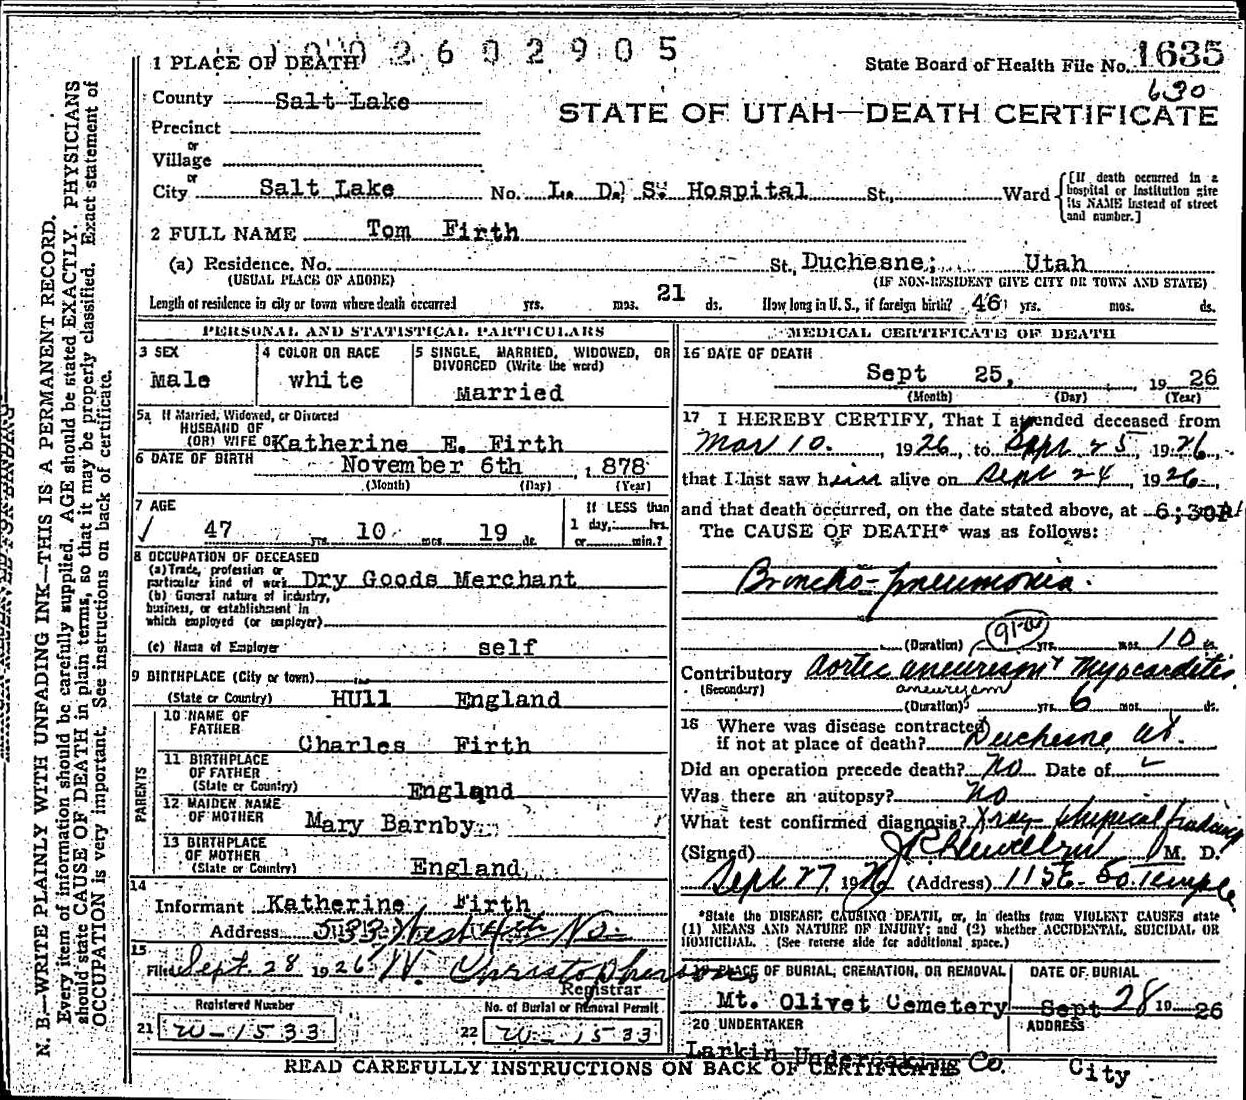 1002602905
1 PLACE OF DEATH
State Board of Health File No. 1635
630
County Salt Lake
STATE OF UTAH—DEATH CERTIFICATE
Precinct
or
Village
or
City Salt Lake No. L. D. S. Hospital St., Ward
[If death occurred in a
hospital or institution give
its NAME instead of street
and number.]
2 FULL NAME Tom Firth
(a) Residence. No. St. Duchesne; Utah
(USUAL PLACE OF ABODE) (IF NON-RESIDENT GIVE CITY OR TOWN AND STATE)
Length of residence in city or town where death occurred yrs. mos. 21 ds. How long in U. S., if foreign birth? 46 yrs. mos. ds.
PERSONAL AND STATISTICAL PARTICULARS
3 SEX
male
4 COLOR OR RACE
white
5 SINGLE, MARRIED, WIDOWED, OR
DIVORCED (Write the word)
Married
5a If Married, Widowed, or Divorced
HUSBAND OF
(OR) WIFE OF Katherine E. Firth
6 DATE OF BIRTH November 6th , 878
(Month) (Day) (Year)
7 AGE
47 yrs. 10 mos. 19 ds.
If LESS than
1 day, hrs.
or min.?
8 OCCUPATION OF DECEASED
(a) Trade, profession or
particular kind of work Dry Goods Merchant
(b) General nature of industry,
business, or establishment in
which employed (or employer)
(c) Name of Employer self
9 BIRTHPLACE (City or town)
(State or Country) HUll England
PARENTS
10 NAME OF
FATHER
Charles Firth
11 BIRTHPLACE
OF FATHER
(State or Country) England
12 MAIDEN NAME
OF MOTHER
Mary Barnby
13 BIRTHPLACE
OF MOTHER
(State or Country) England
14
Informant Katherine Firth
Address 533 West 4th No.
15
Filed Sept. 28 1926 W. Christopherson
Registrar
Registered Number
21 W-1533
No. of Burial or Removal Permit
22 W-1533
MEDICAL CERTIFICATE OF DEATH
16 DATE OF DEATH
Sept 25, 1926
(Month) (Day) (Year)
17 I HEREBY CERTIFY, That I attended deceased from
Mar 10. , 1926, to Sept 25, 1926,
that I last saw him alive on Sept 24, 1926,
and that death occurred, on the date stated above, at 6;30A
The CAUSE OF DEATH* was as follows:
Broncho-pneumonia.
(Duration) yrs. mos. 10 ds.
Contributory Aortic aneurism & Myocarditis
(Secondary) aneurysm
(Duration) yrs. 6 mos. ds.
18 Where was disease contracted
if not at place of death? Duchesne, Ut.
Did an operation precede death? No Date of
Was there an autopsy? No
What test confirmed diagnosis? Xray Physical findings
(Signed) M. D.
Sept 27, 1926 (Address) 115 E- So. Temple
*State the DISEASE CAUSING DEATH, or, in deaths from VIOLENT CAUSES state
(1) MEANS AND NATURE OF INJURY; and (2) whether ACCIDENTAL, SUICIDAL OR
HOMICIDAL. (See reverse side for additional space.)
19 PLACE OF BURIAL, CREMATION, OR REMOVAL
Mt. Olivet Cemetery
DATE OF BURIAL
Sept 28 19 26
20 UNDERTAKER
Larkin Undertaking Co.
ADDRESS
City
READ CAREFULLY INSTRUCTIONS ON BACK OF CERTIFICATE
N. B.—WRITE PLAINLY WITH UNFADING INK—THIS IS A PERMANENT RECORD.
Every item of information should be carefully supplied. AGE should be stated EXACTLY. PHYSICIANS
should state CAUSE OF DEATH in plain terms, so that it may be properly classified. Exact statement of
OCCUPATION is very important. See instructions on back of certificate.